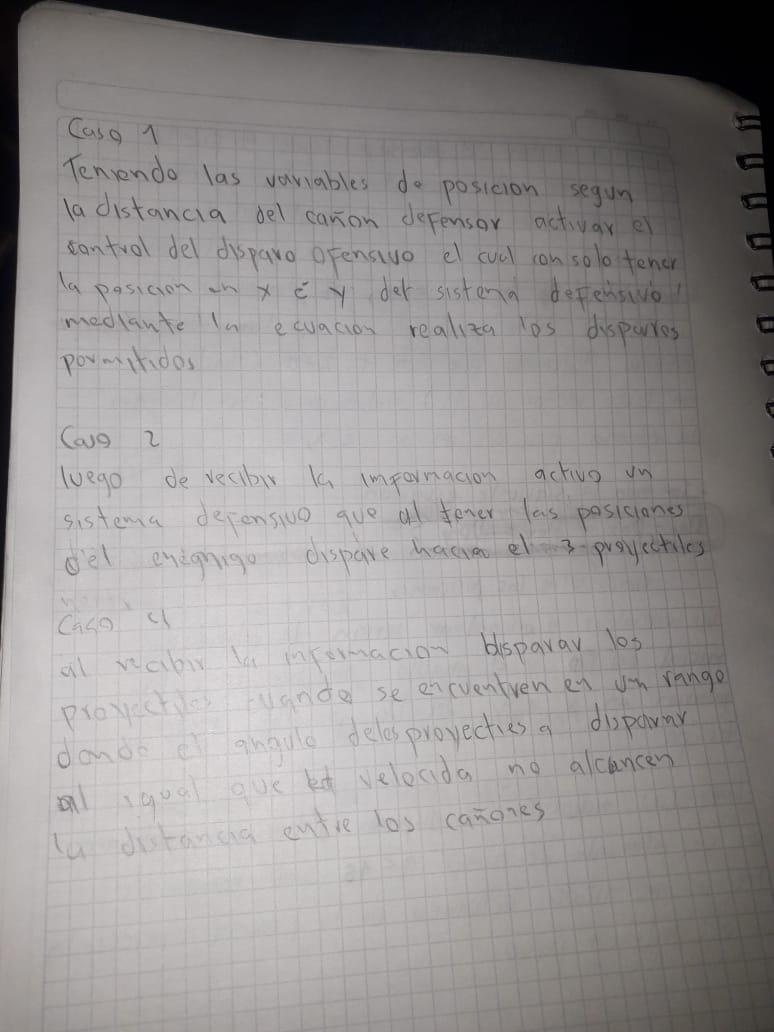 Caso 1
Teniendo las variables de posicion segun
la distancia del cañon defensor activar el
control del disparo ofensivo el cual con solo tener
la posicion en x e y del sistema defensivo
mediante la ecuacion realiza los disparos
permitidos
Caso 2
luego de recibir la informacion activo un
sistema defensivo que al tener las posiciones
del enemigo dispare hacia el 3 proyectiles
Caso 4
al recibir la informacion disparar los
proyectiles cuando se encuentren en un rango
donde el angulo de los proyecties a disparar
al igual que la velocida no alcancen
la distancia entre los cañones